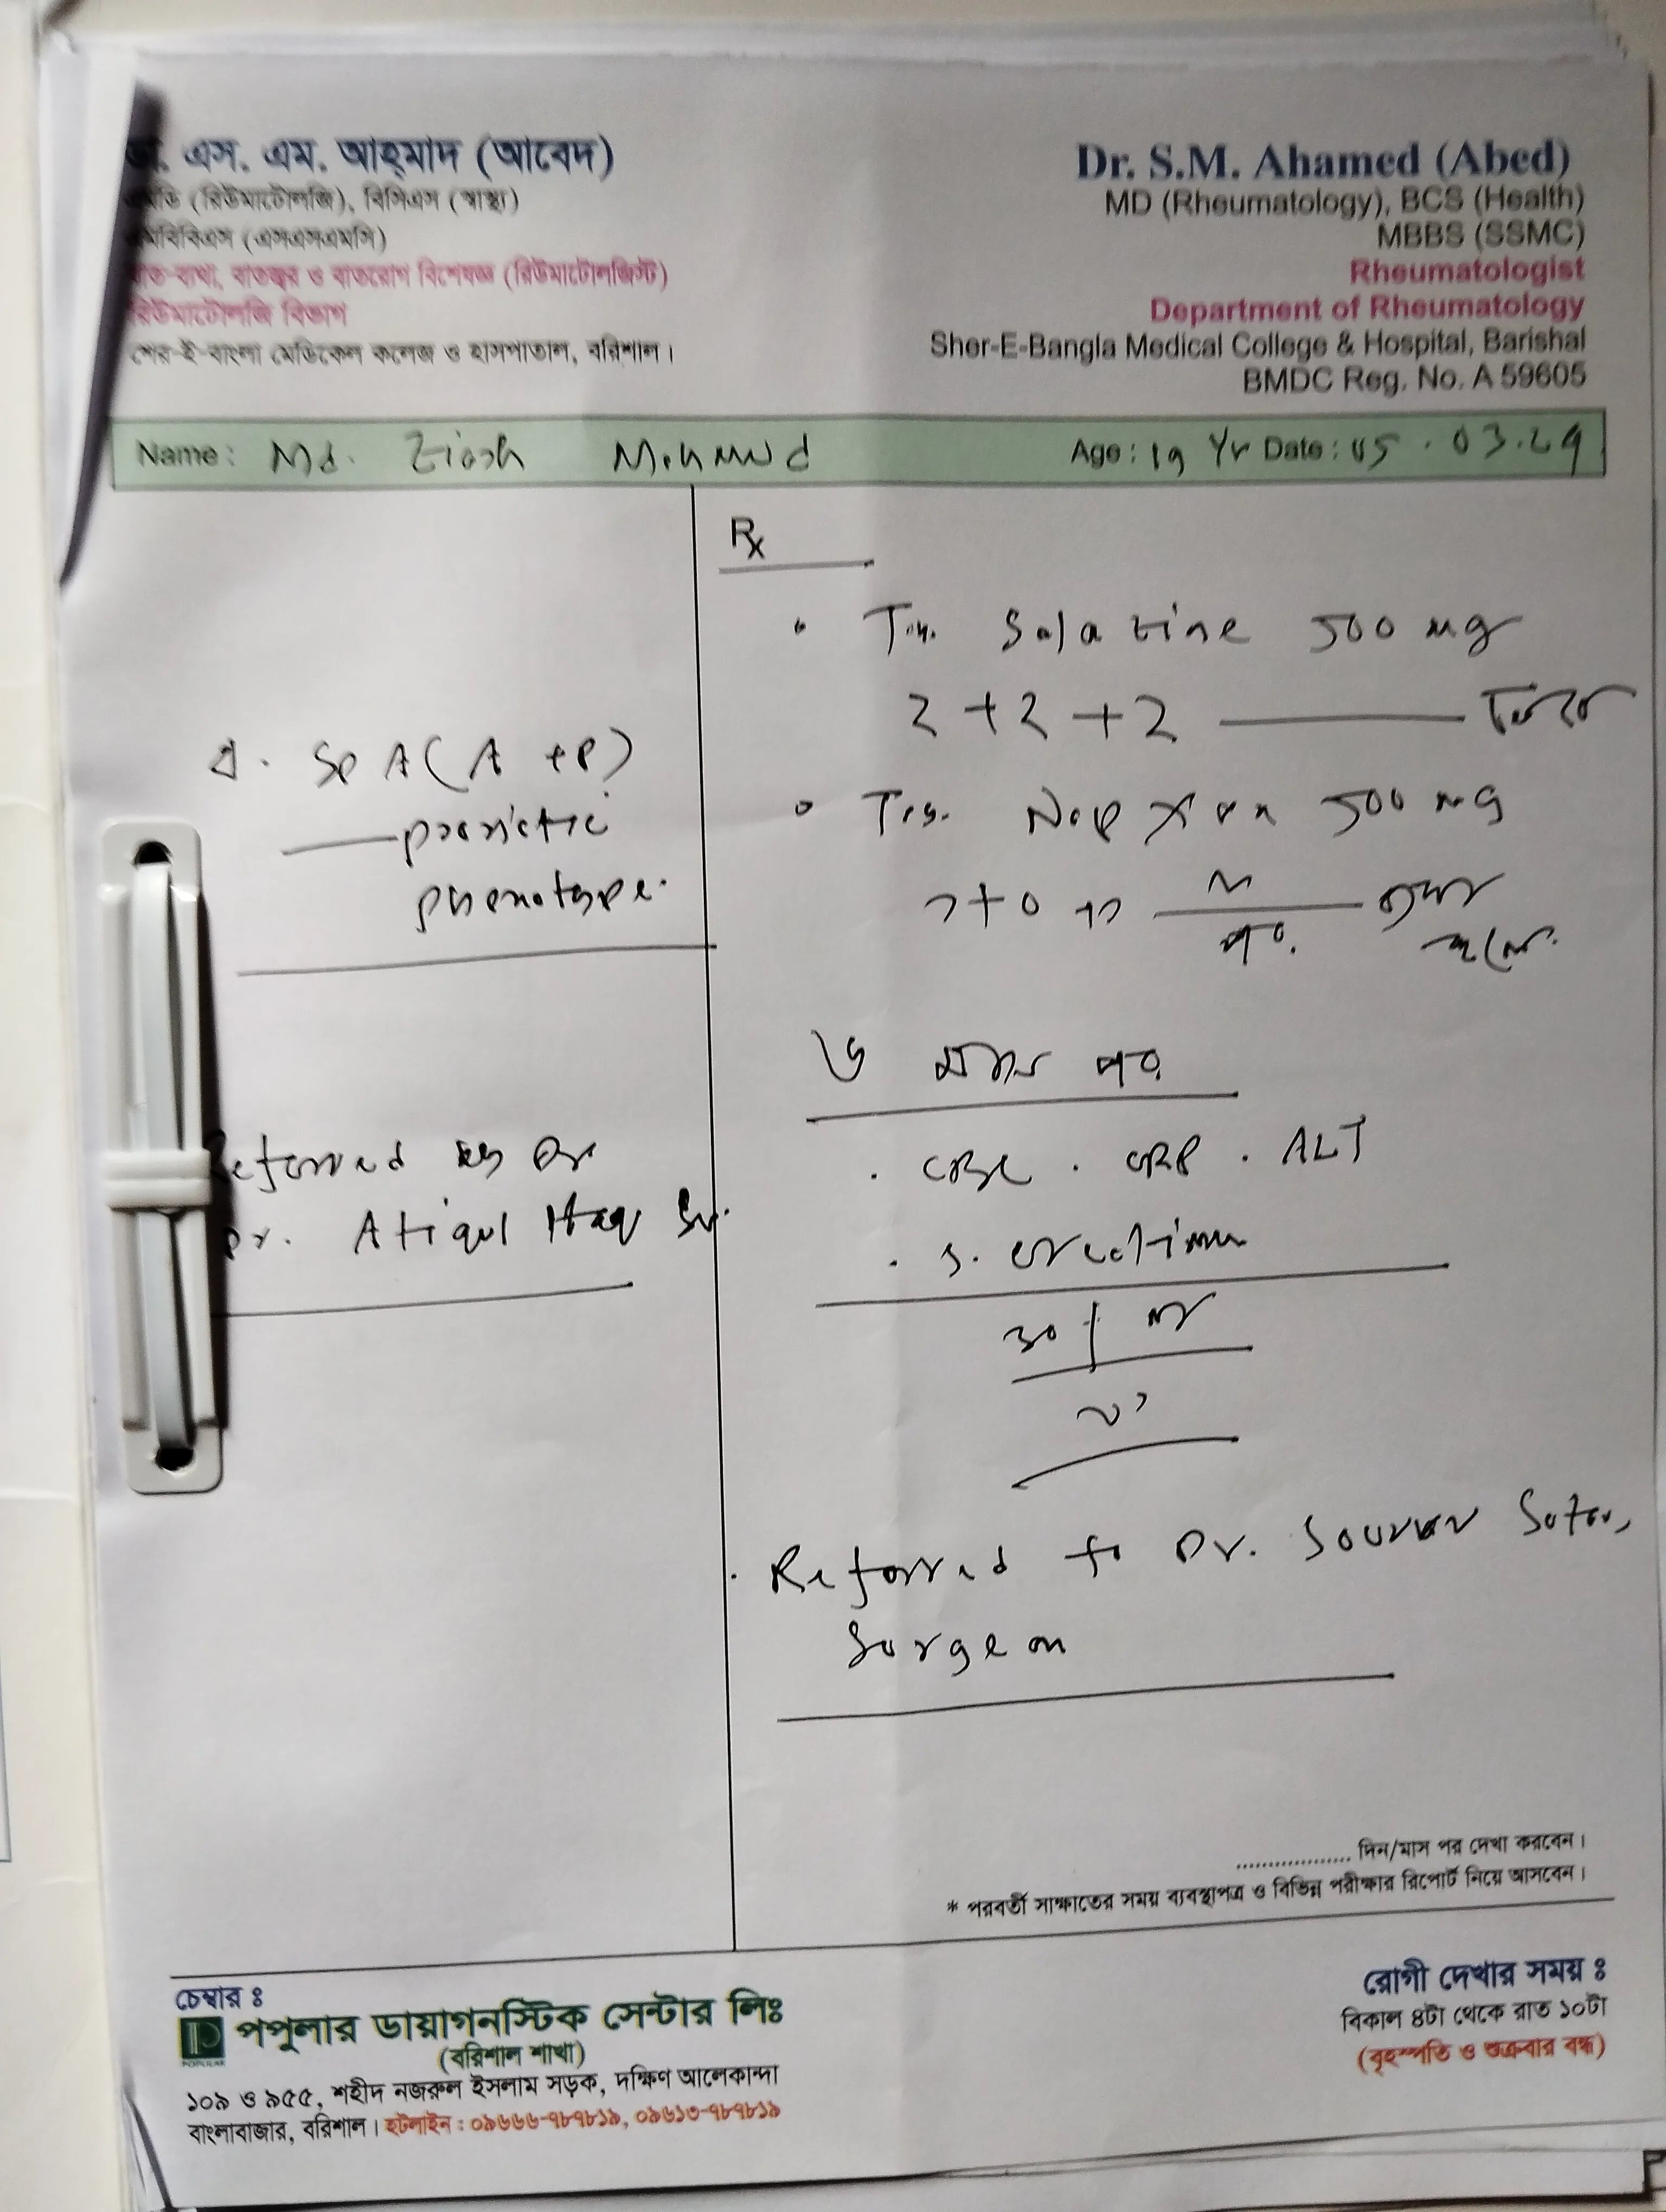 ডা. এস. এম. আহ্‌মাদ (আবেদ)
এমডি (রিউমাটোলজি), বিসিএস (স্বাস্থ্য)
এমবিবিএস (এসএসএমসি)
বাত-ব্যথা, বাতজ্বর ও বাতরোগ বিশেষজ্ঞ (রিউমাটোলজিস্ট)
রিউমাটোলজি বিভাগ
শের-ই-বাংলা মেডিকেল কলেজ ও হাসপাতাল, বরিশাল।
Dr. S.M. Ahamed (Abed)
MD (Rheumatology), BCS (Health)
MBBS (SSMC)
Rheumatologist
Department of Rheumatology
Sher-E-Bangla Medical College & Hospital, Barishal
BMDC Reg. No. A 59605
Name: Md. Age: 19 Yr Date: 05.03.
SPA (A + P)
phenotype.
Referred by
Dr. Atiqul Haq Sir.
Rx
500 mg
2 + 2 + 2
500 mg
৬ মাস পর
. CBC . CRP . ALT
. S. creatinine
. Referred to Dr.
Surgeon
.................. দিন/মাস পর দেখা করবেন।
* পরবর্তী সাক্ষাতের সময় ব্যবস্থাপত্র ও বিভিন্ন পরীক্ষার রিপোর্ট নিয়ে আসবেন।
চেম্বার ঃ
POPULAR
পপুলার ডায়াগনস্টিক সেন্টার লিঃ
(বরিশাল শাখা)
১০৯ ও ৯৫৫, শহীদ নজরুল ইসলাম সড়ক, দক্ষিণ আলেকান্দা
বাংলাবাজার, বরিশাল। হটলাইন : ০৯৬৬৬-৭৮৭৮১৯, ০৯৬১৩-৭৮৭৮১৯
রোগী দেখার সময় ঃ
বিকাল ৪টা থেকে রাত ১০টা
(বৃহস্পতি ও শুক্রবার বন্ধ)